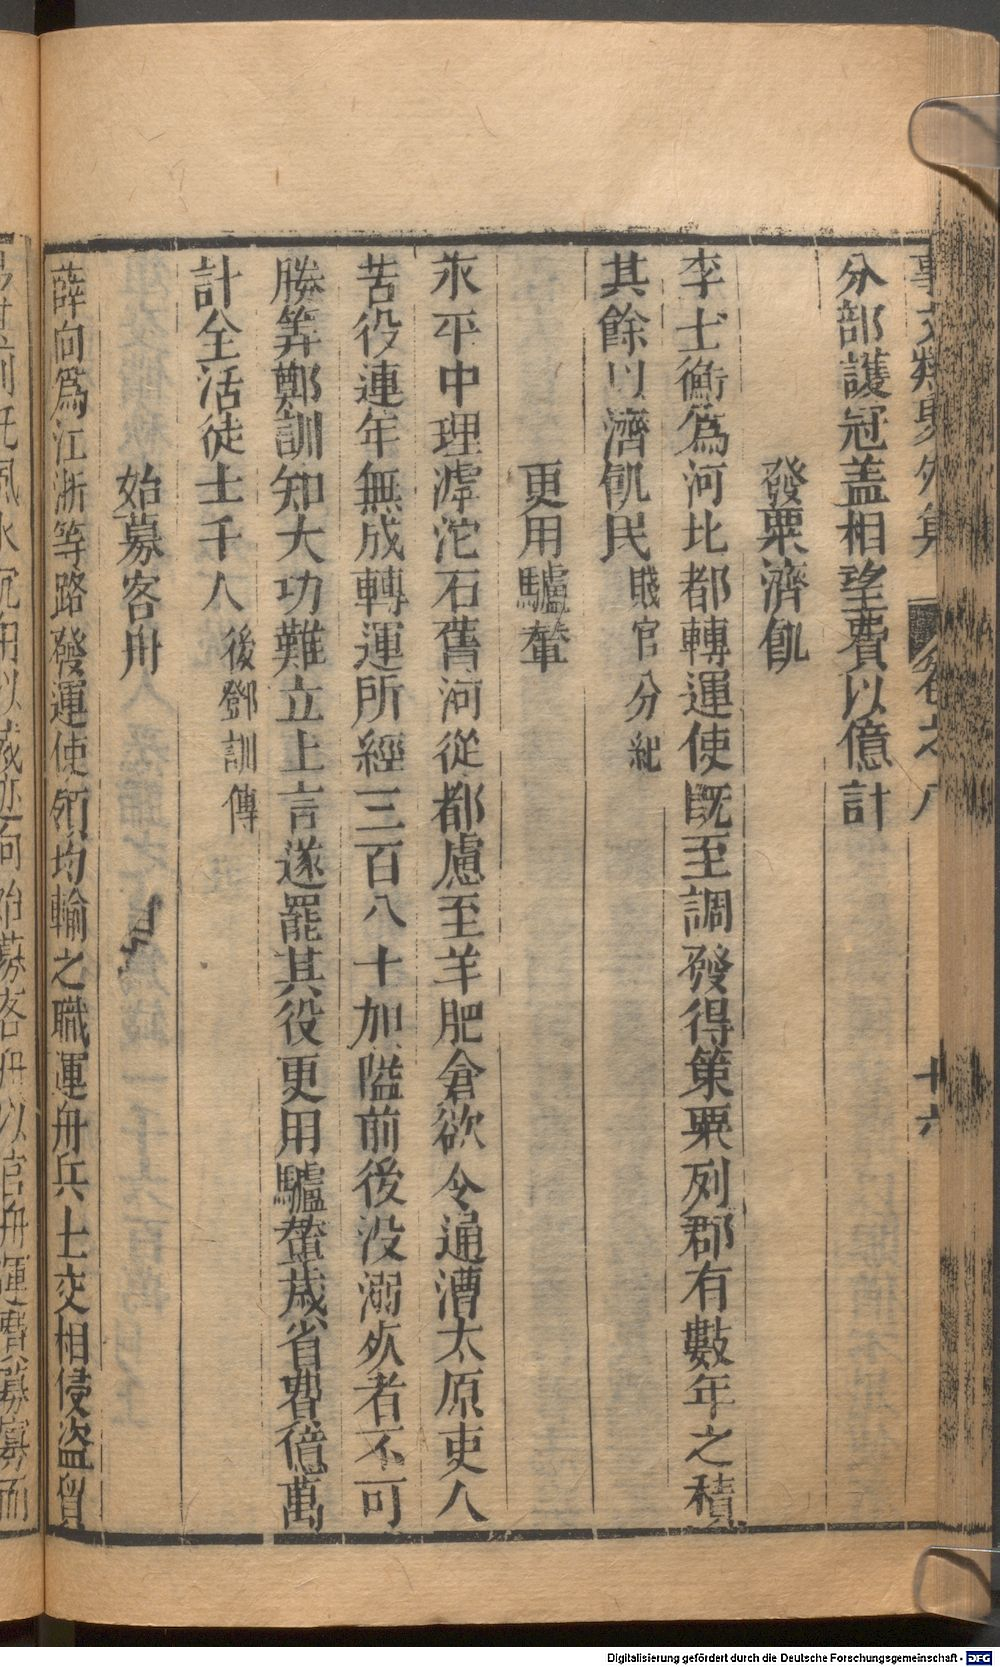 事文類聚外集 卷之八 十六
分部護冠盖相望費以億計
發粟濟飢
李士衡為河比都轉運使既至調發得策粟列郡有數年之積
其餘以濟飢民 職官分紀
更用驢輦
永平中理滹沱石舊河從都慮至羊肥倉欲令通漕太原吏人
苦役連年無成轉運所經三百八十加隘前後没溺死者不可
勝筭鄭訓知大功難立上言遂罷其役更用驢輦歲省費億萬
計全活徒士千人 後鄧訓傳
始募客舟
薛向爲江浙等路發運使領均輸之職運舟兵士交相侵盗貿
風水沉用以滅迹向始募客舟以官舟運費募寡而
Digitalisierung gefördert durch die Deutsche Forschungsgemeinschaft - DFG